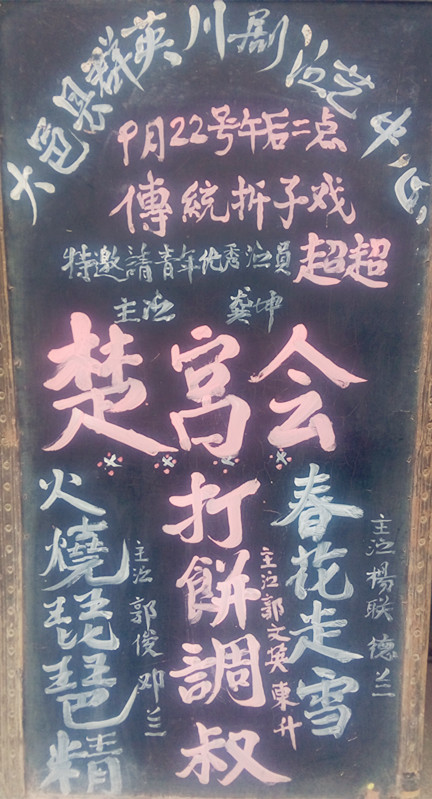 大邑县群英川剧演艺中心
9月22号午后二点
傳統折子戏
特邀請青年优秀演員超超
主演 龚坤
楚宫会
春花走雪
主演 楊联 德兰
打餅調叔
主演 郭文英 東升
火燒琵琶精
主演 郭俊 邓兰